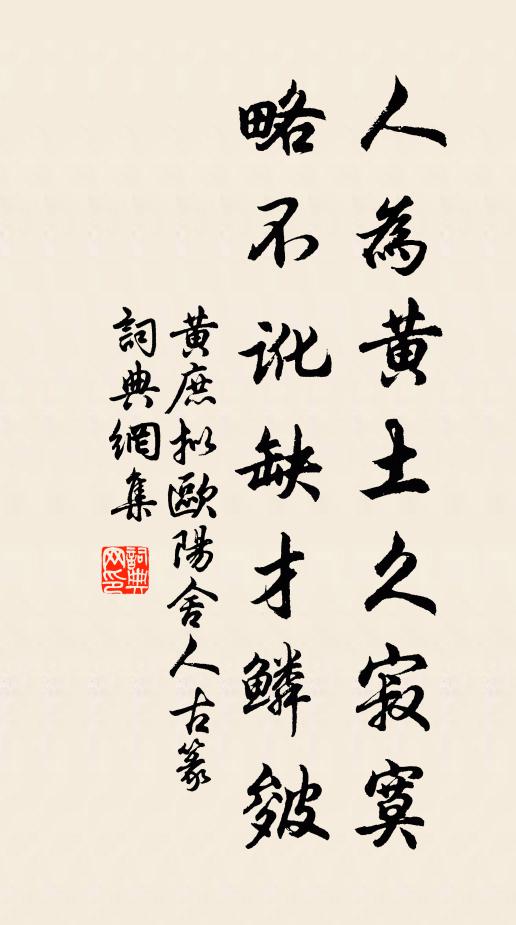 人為黃土久寂寞
略不訛缺才鱗皴
黃庶拟歐陽舍人古篆
詞典網集
詞典網印